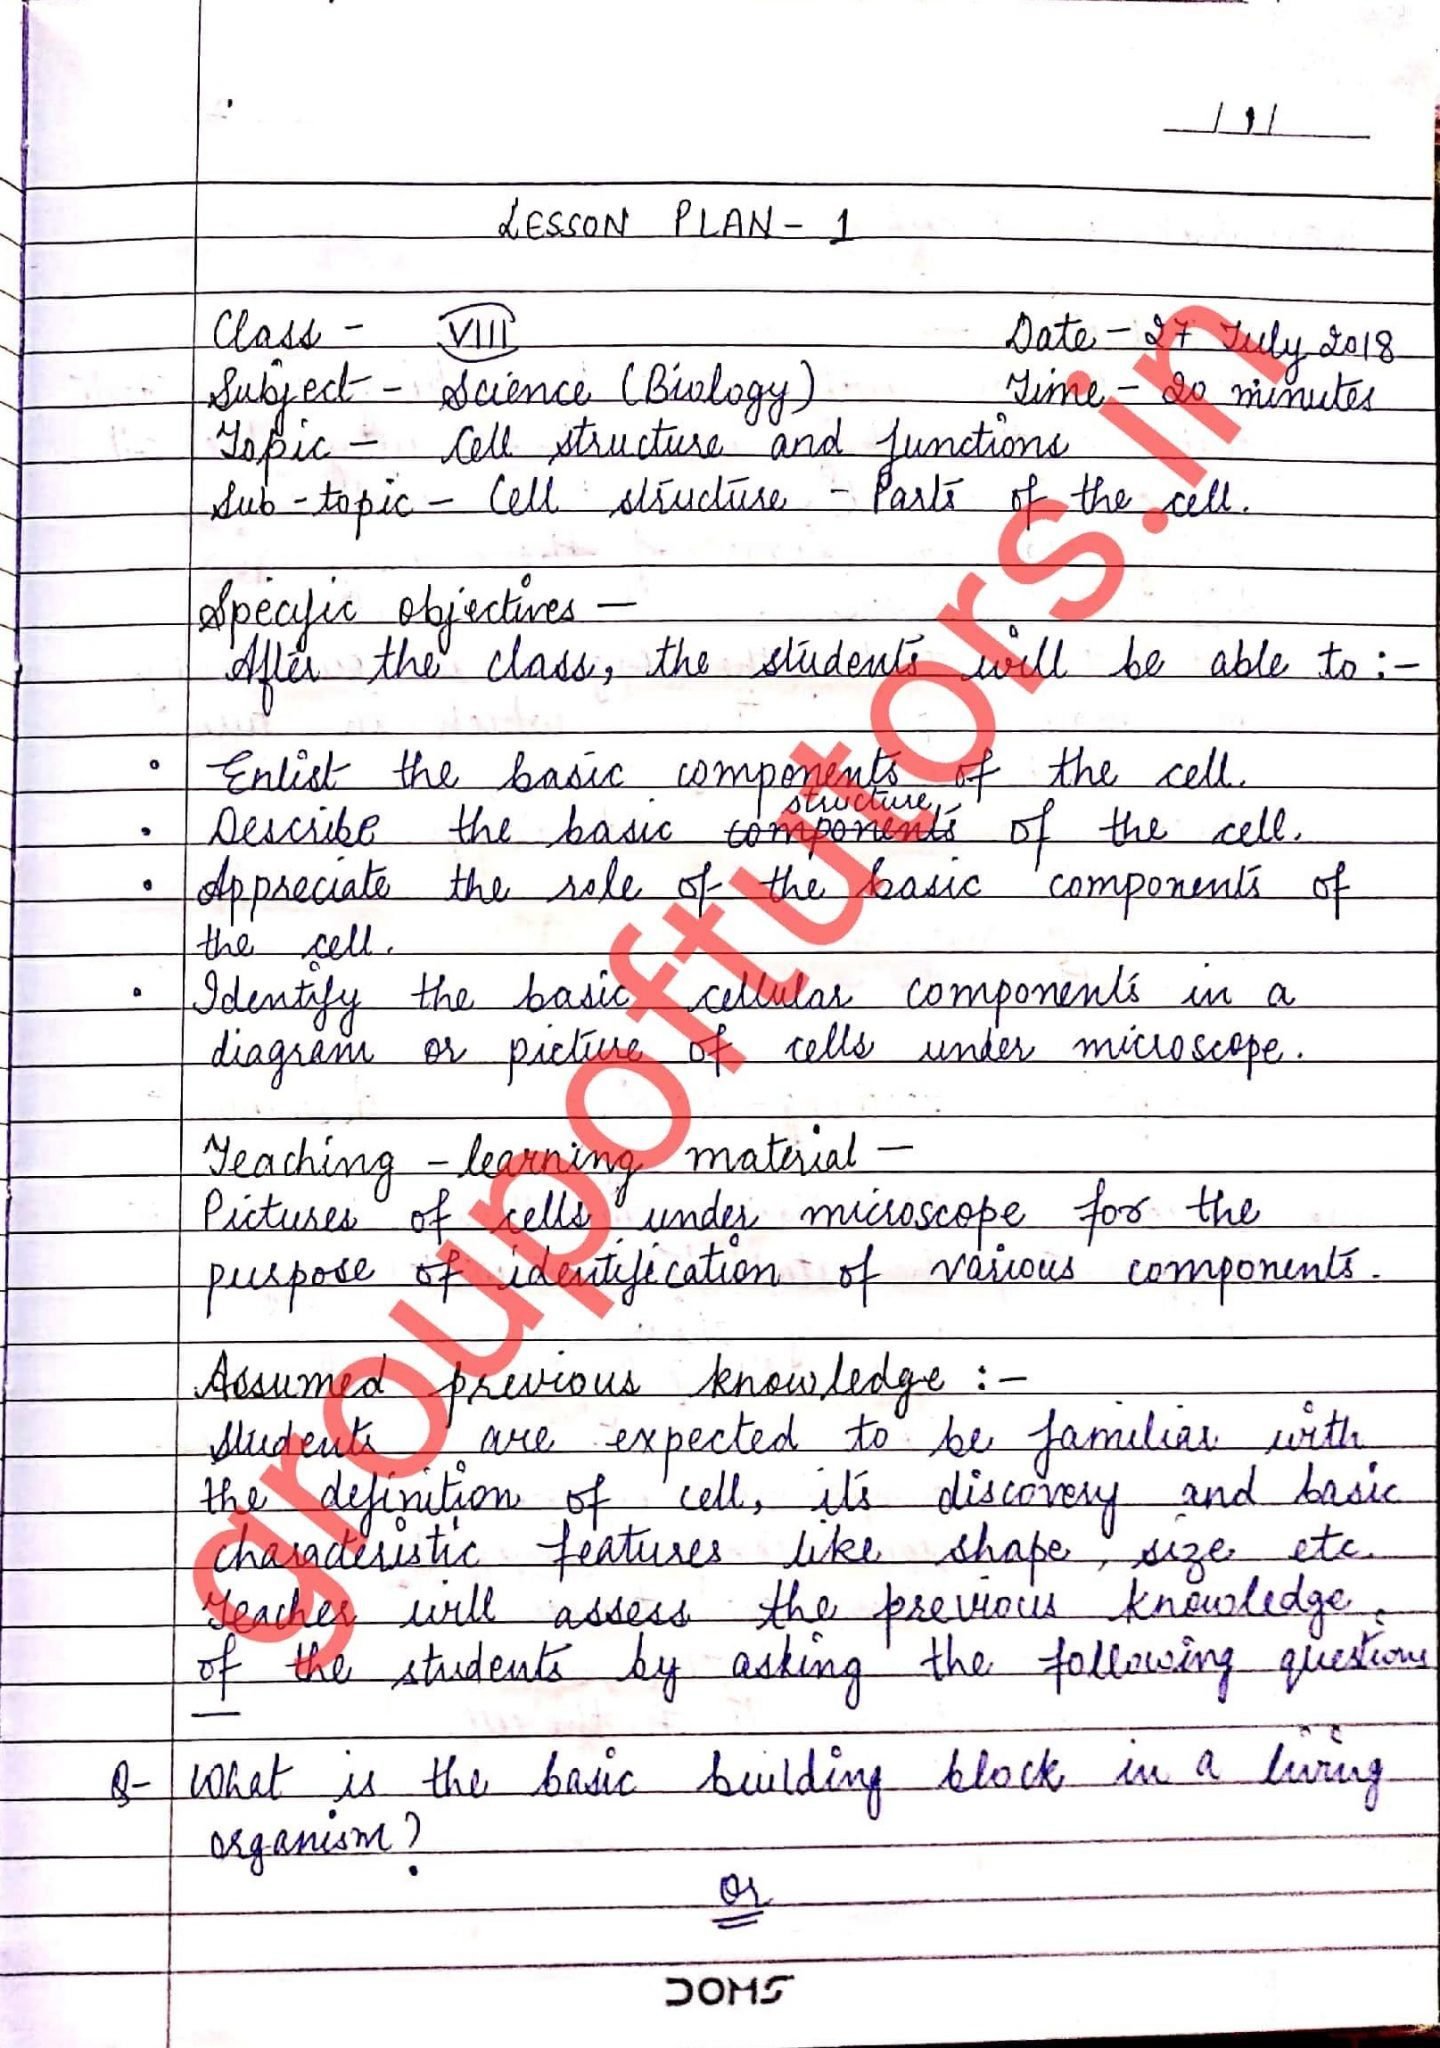 LESSON PLAN - 1
Class - VIII Date - 27 July 2018
Subject - Science (Biology) Time - 20 minutes
Topic - Cell structure and functions
Sub-topic - Cell structure - Parts of the cell.
Specific objectives -
After the class, the students will be able to :-
• Enlist the basic components of the cell.
structure
• Describe the basic components of the cell.
• Appreciate the role of the basic components of
the cell.
• Identify the basic cellular components in a
diagram or picture of cells under microscope.
Teaching - learning material -
Pictures of cells under microscope for the
purpose of identification of various components.
Assumed previous knowledge :-
Students are expected to be familiar with
the definition of cell, its discovery and basic
characteristic features like shape, size etc.
Teacher will assess the previous knowledge
of the students by asking the following questions
—
Q- What is the basic building block in a living
organism?
Or
DOMS
groupoftutors.in